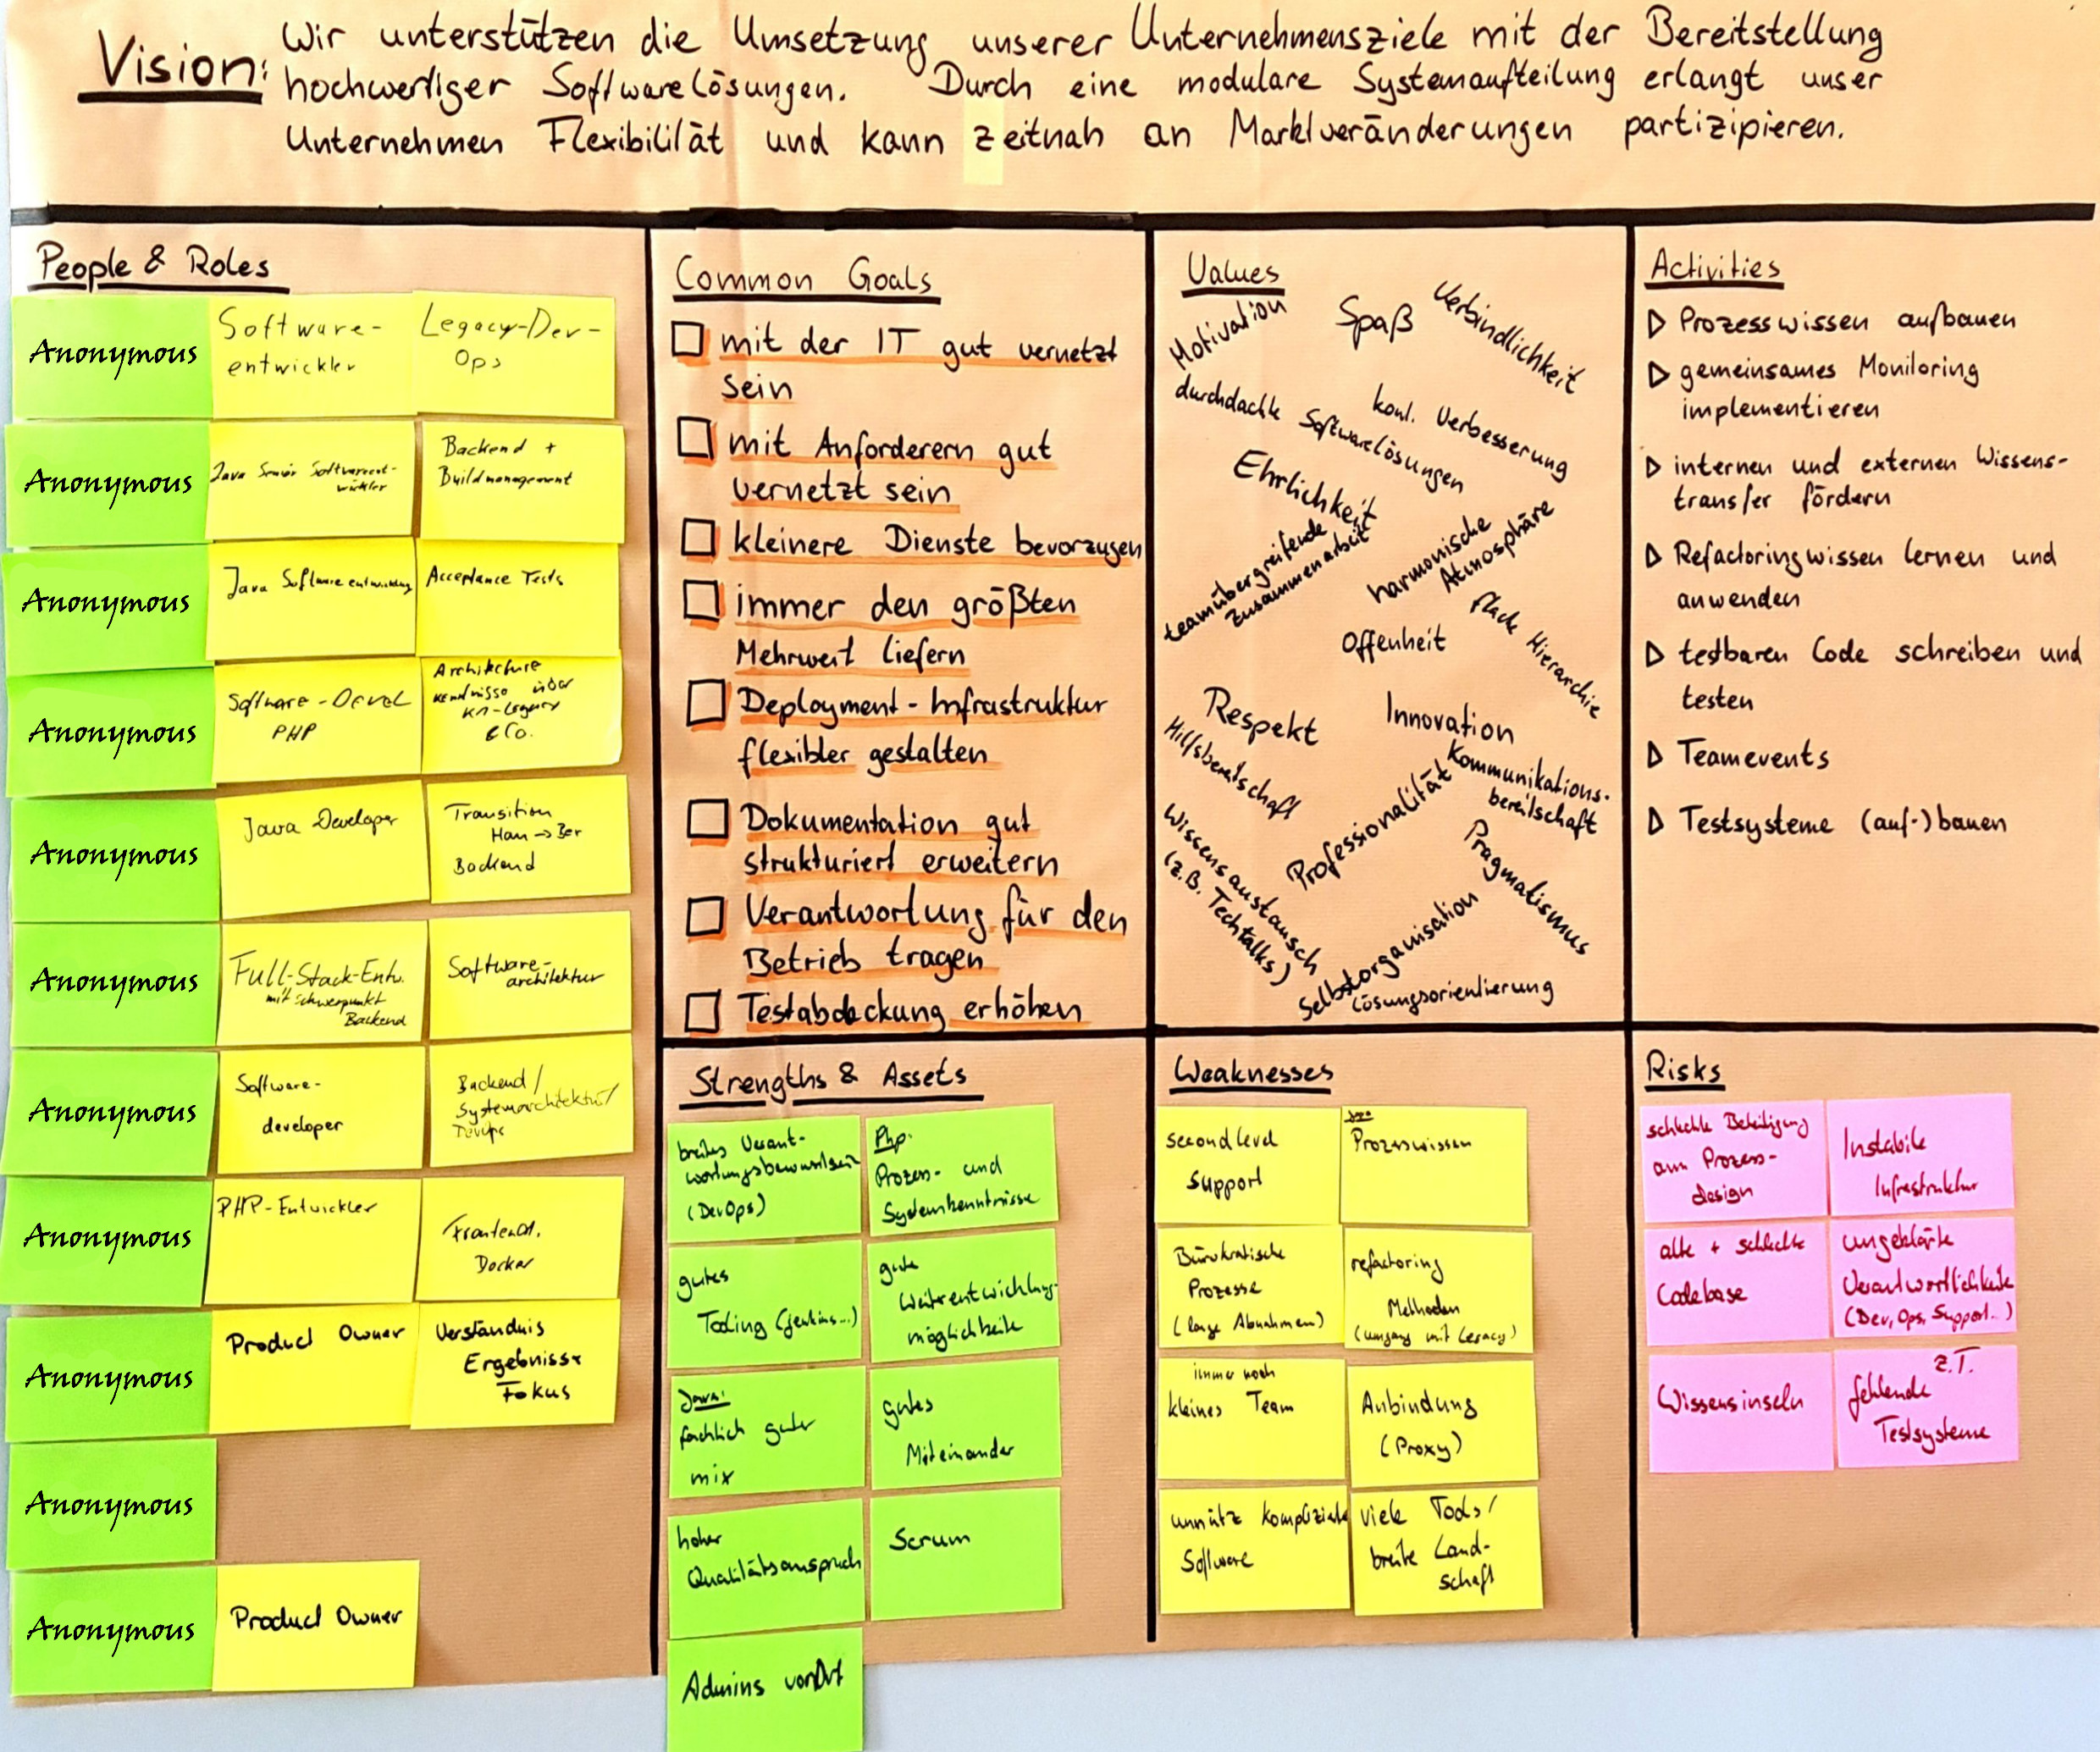 Vision: Wir unterstützen die Umsetzung unserer Unternehmensziele mit der Bereitstellung
hochwertiger Softwarelösungen. Durch eine modulare Systemaufteilung erlangt unser
Unternehmen Flexibilität und kann zeitnah an Marktveränderungen partizipieren.
People & Roles
Anonymous
Software-
entwickler
Legacy-Dev-
Ops
Anonymous
Java Senior Softwareent-
wickler
Backend +
Buildmanagement
Anonymous
Java Softwareentwicklung
Acceptance Tests
Anonymous
Software-Devel
PHP
Architekture
kenntnisse über
Legacy
& Co.
Anonymous
Java Developer
Transition
Ham → Ber
Backend
Anonymous
Full-Stack-Entw.
mit Schwerpunkt
Backend
Software-
architektur
Anonymous
Software-
developer
Backend/
Systemarchitektur/
DevOps
Anonymous
PHP-Entwickler
Frontend,
Docker
Anonymous
Product Owner
Verständnis
Ergebnisse
Fokus
Anonymous
Anonymous
Product Owner
Common Goals
mit der IT gut vernetzt
sein
mit Anforderern gut
vernetzt sein
kleinere Dienste bevorzugen
immer den größten
Mehrwert liefern
Deployment-Infrastruktur
flexibler gestalten
Dokumentation gut
strukturiert erweitern
Verantwortung für den
Betrieb tragen
Testabdeckung erhöhen
Values
Motivation
Spaß
Verbindlichkeit
durchdachte Softwarelösungen
kont. Verbesserung
Ehrlichkeit
teamübergreifende
Zusammenarbeit
harmonische
Atmosphäre
flache Hierarchie
Offenheit
Respekt
Innovation
Hilfsbereitschaft
Kommunikations-
bereitschaft
Professionalität
Wissensaustausch
(z.B. Techtalks)
Pragmatismus
Selbstorganisation
Lösungsorientierung
Activities
Prozesswissen aufbauen
gemeinsames Monitoring
implementieren
internen und externen Wissens-
transfer fördern
Refactoringwissen lernen und
anwenden
testbaren Code schreiben und
testen
Teamevents
Testsysteme (auf-)bauen
Strengths & Assets
breites Verant-
wortungsbewusstsein
(DevOps)
Php:
Prozess- und
Systemkenntnisse
gutes
Tooling (Jenkins...)
gute
Weiterentwicklungs-
möglichkeite
Java:
fachlich guter
mix
gutes
Miteinander
hoher
Qualitätsanspruch
Scrum
Admins vorOrt
Weaknesses
second level
Support
Prozesswissen
Bürokratische
Prozesse
(lange Abnahmen)
refactoring
Methoden
(umgang mit Legacy)
immer noch
kleines Team
Anbindung
(Proxy)
unnütz komplizierte
Software
viele Tools/
breite Land-
schaft
Risks
schlechte Beteiligung
am Prozess-
design
Instabile
Infrastruktur
alte + schlechte
Codebase
ungeklärte
Verantwortlichkeite
(Dev, Ops, Support...)
Wissensinseln
z.T.
fehlende
Testsysteme